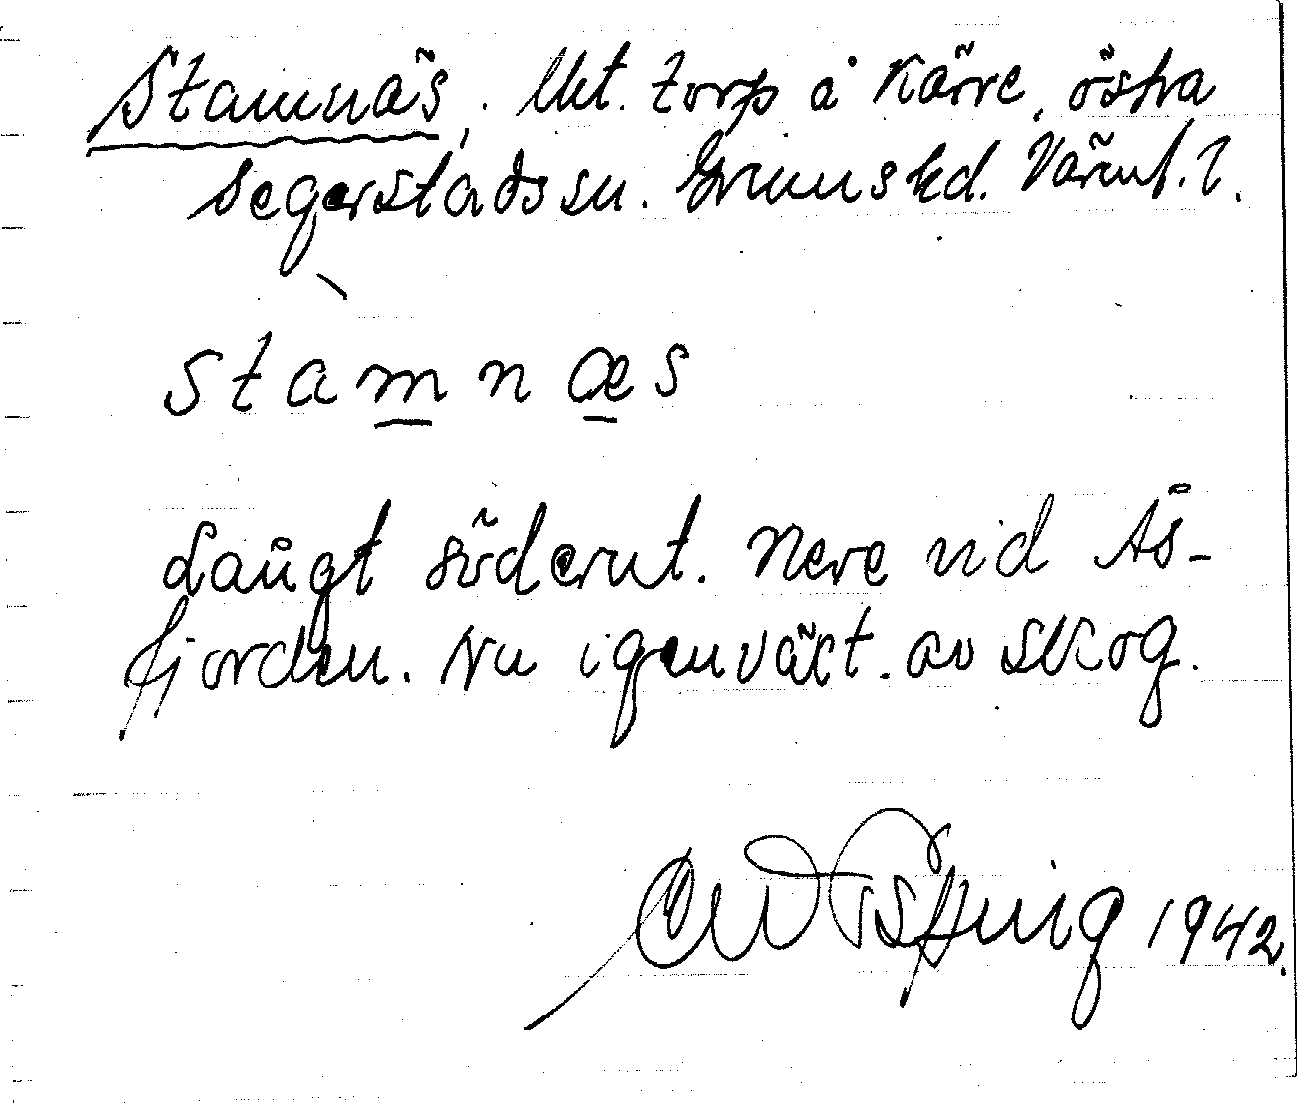 Stamnäs, Utt. torp å Kärre, östra
Segerstads sn. Grums hd. Värml. l.
stàmnæs
Långt söderut. Nere vid Ås-
fjorden. Nu igenväxt. av skog.
1942.